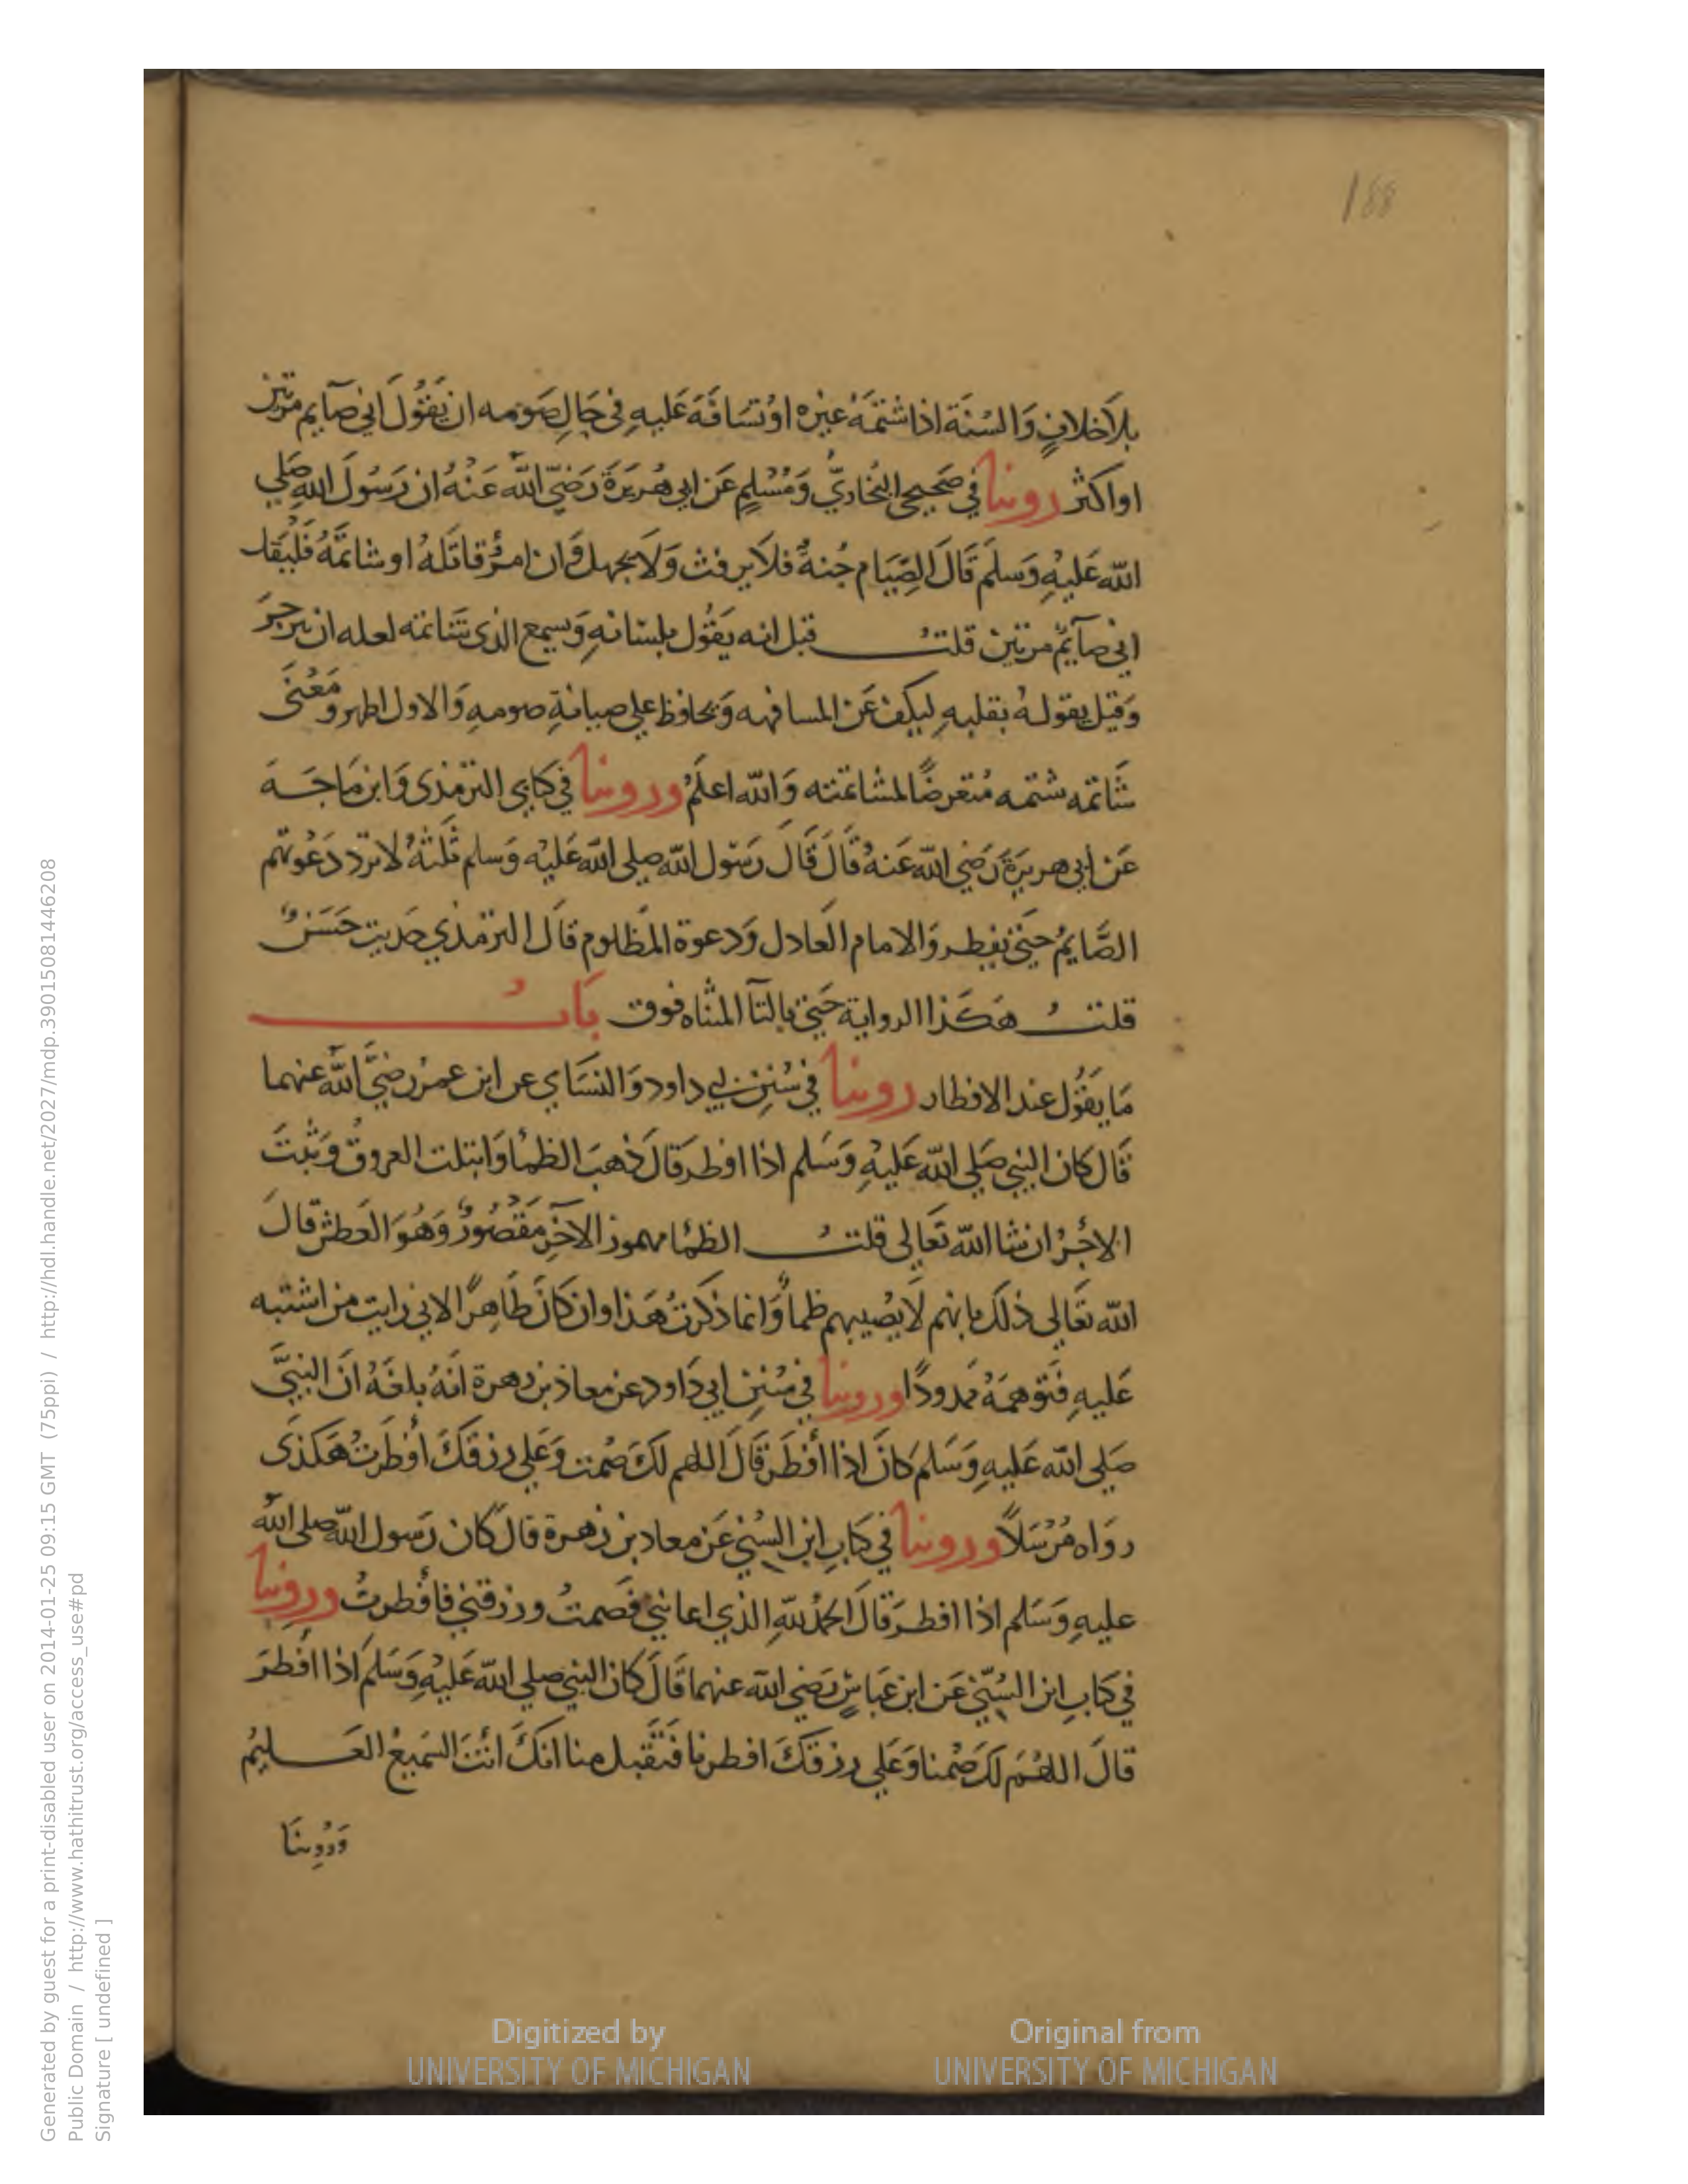 188
بلاَخلافٍ وَالسُنَة اذا شتمَهُ غيره اوُ تسَافَهَ عَليهِ فى حَالِ صَومه ان يَقوُلَ انى صَآيم مرّتين
او اكثر روينا فى صَحيحى البُخارىّ وَمُسْلِم عَن ابى هُريَرَةَ رَضىَ الله عَنْهُ ان رَسُولَ اللهِ صَلى
الله عَليْهِ وَسلمَ قَالَ الصِّيَام جُنةٌ فلاَ يرفث وَلاَ يجهل وَان امرُؤ قاتَلهُ او شاتمَهُ فَلْيَقل
انى صَآيمٌ مرتين قلتُ قيل انه يَقوُل بلسَانهِ وَيسمع الذى شَاتمه لعله ان ينزجرَ
وَقيل يقولهُ بقلبهِ ليكفَ عَن المسافهه وَيحَافظ على صيانةِ صومهِ وَالاول اظهر ومَعْنَى
شَاتمه شتمه مُتعرضًا لمشاتمته وَالله اعلَمُ وروينا فى كتابى الترمذى وَابن مَاجَه
عَن ابى هريرَة رَضى الله عَنهُ قَالَ قَالَ رَسوُل الله صلى الله عَليْه وَسلم ثلثةٌ لا ترد دَعْوتهم
الصَّايمُ حتى يفطر وَالامام العَادل وَدعوة المظلوم قالَ الترمذى حَديث حَسَنٌ
قلتُ هَكَذا الرواية حَتى بالتآ المثناه فوق بَابُ
مَا يَقوُل عند الافطار روينا فى سُنن ابى داود وَالنسَاى عن ابن عمرَ رضىَ اللهَ عنهما
قَال كان النبى صَلى الله عَليْهِ وَسَلم اذا افطرَ قالَ ذهبَ الظمأ وَابتلت العروقُ وَثبتَ
الاجْرُ ان شا الله تَعَالى قلتُ الظمأ مهموز الآخر مَقْصُورٌ وَهُوَ العَطش قالَ
الله تعَالى ذلكَ بانهم لاَ يُصيبهم ظمأٌ وَانما ذكرتُ هَذا وان كانَ ظاهِرًا لانى رايت من اشتبه
عَليهِ فتَوهمَهُ ممدودًا وروينا فى سُنن ابى دَاود عن معاذ بن زهرة انَهُ بلغَهُ انَ النبىَّ
صَلى الله عَليهِ وَسَلم كانَ اذا أفطَرَ قَالَ اللهم لكَ صُمت وَعَلى رزقكَ افْطرتُ هَكذَى
رواه مُرْسَلاً وروينا فى كتابِ ابن السُنى عَن معاد بن زهرة قالَ كان رَسوُل الله صلى الله
عليهِ وَسَلم اذا افطرَ قالَ الحمدُ للهِ الذى اعاننى فَصمتُ ورزقنى فافْطرتُ وروينا
فى كتابِ ابن السُنّى عَن ابن عَباسٍ رَضى الله عنهما قَالَ كان النبى صلى الله عَليْهِ وَسَلمَ اذا افطرَ
قالَ اللهُمَ لكَ صُمْنا وَعَلى رزقكَ افطرنا فتَقَبل منا انكَ أنْتَ السَميعُ العَليمُ
وَرُوينَا
Digitized by
UNIVERSITY OF MICHIGAN
Original from
UNIVERSITY OF MICHIGAN
Generated by guest for a print-disabled user on 2014-01-25 09:15 GMT (75ppi) / http://hdl.handle.net/2027/mdp.39015081446208
Public Domain / http://www.hathitrust.org/access_use#pd
Signature [ undefined ]